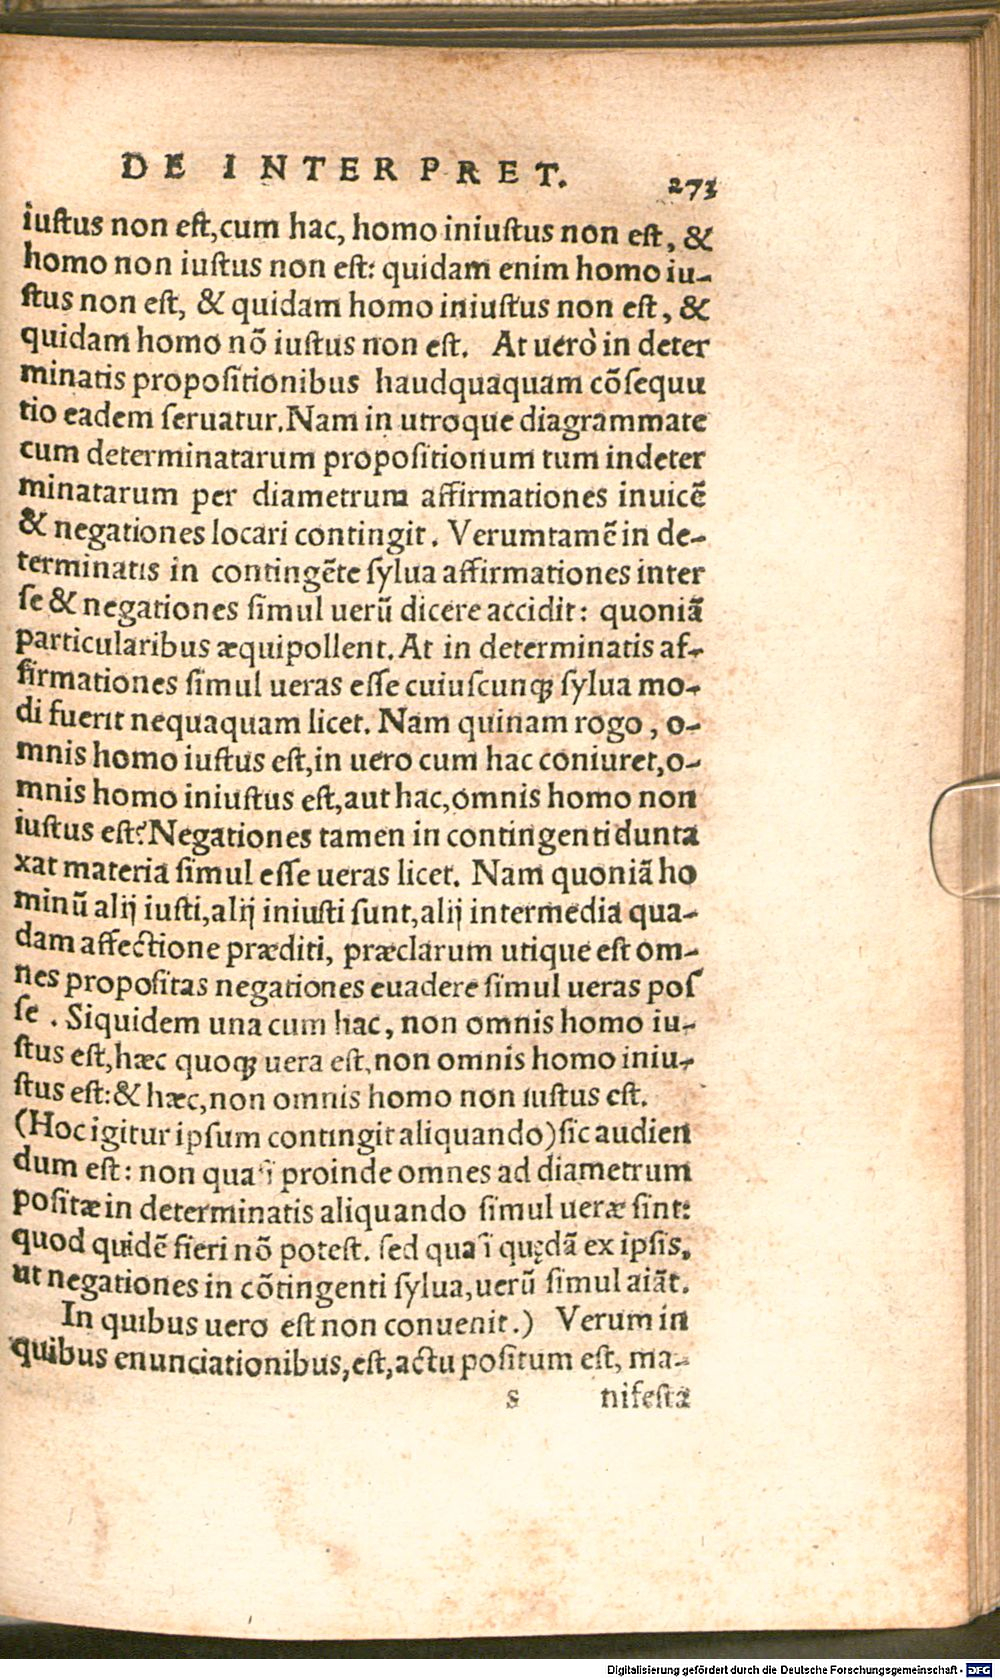 DE INTERPRET. 273
iustus non est, cum hac, homo iniustus non est, &
homo non iustus non est: quidam enim homo iu-
stus non est, & quidam homo iniustus non est, &
quidam homo nõ iustus non est. At uerò in deter
minatis propositionibus haudquaquam cõsequu
tio eadem seruatur. Nam in utroque diagrammate
cum determinatarum propositionum tum indeter
minatarum per diametrum affirmationes inuicẽ
& negationes locari contingit. Verumtamẽ in de-
terminatis in contingẽte sylua affirmationes inter
se & negationes simul uerũ dicere accidit: quoniã
particularibus æquipollent. At in determinatis af-
firmationes simul ueras esse cuiuscunqꝫ sylua mo-
di fuerit nequaquam licet. Nam quinam rogo, o-
mnis homo iustus est, in uero cum hac coniuret, o-
mnis homo iniustus est, aut hac, omnis homo non
iustus est? Negationes tamen in contingenti dunta
xat materia simul esse ueras licet. Nam quoniã ho
minũ alij iusti, alij iniusti sunt, alij intermedia qua-
dam affectione præditi, præclarum utique est om-
nes propositas negationes euadere simul ueras pos
se. Siquidem una cum hac, non omnis homo iu-
stus est, hæc quoqꝫ uera est, non omnis homo iniu-
stus est: & hæc, non omnis homo non iustus est.
(Hoc igitur ipsum contingit aliquando) sic audien
dum est: non quasi proinde omnes ad diametrum
positæ in determinatis aliquando simul ueræ sint:
quod quidẽ fieri nõ potest. sed quasi quędã ex ipsis,
ut negationes in cõtingenti sylua, uerũ simul aiãt.
In quibus uero est non conuenit.) Verum in
quibus enunciationibus, est, actu positum est, ma-
s nifesta
Digitalisierung gefördert durch die Deutsche Forschungsgemeinschaft - DFG